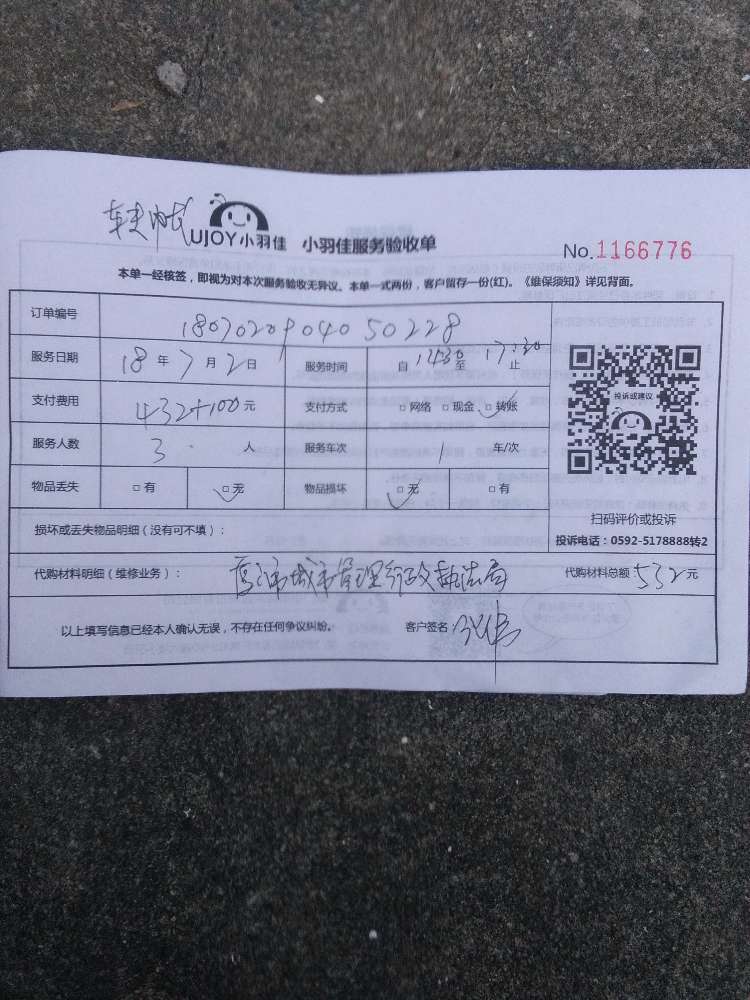 UJOY小羽佳 小羽佳服务验收单
No.1166776
本单一经核签，即视为对本次服务验收无异议。本单一式两份，客户留存一份(红)。《维保须知》详见背面。
订单编号 1807020904050228
服务日期 18年7月2日 服务时间 自14:30至17:30止
支付费用 432+100元 支付方式 □网络 □现金 □转账
投诉或建议
服务人数 3人 服务车次 1车/次
物品丢失 □有 □无 物品损坏 □无 □有
扫码评价或投诉
损坏或丢失物品明细（没有可不填）：
投诉电话：0592-5178888转2
代购材料明细（维修业务）： 厦门市城市管理行政执法局 代购材料总额：532元
以上填写信息已经本人确认无误，不存在任何争议纠纷。 客户签名：